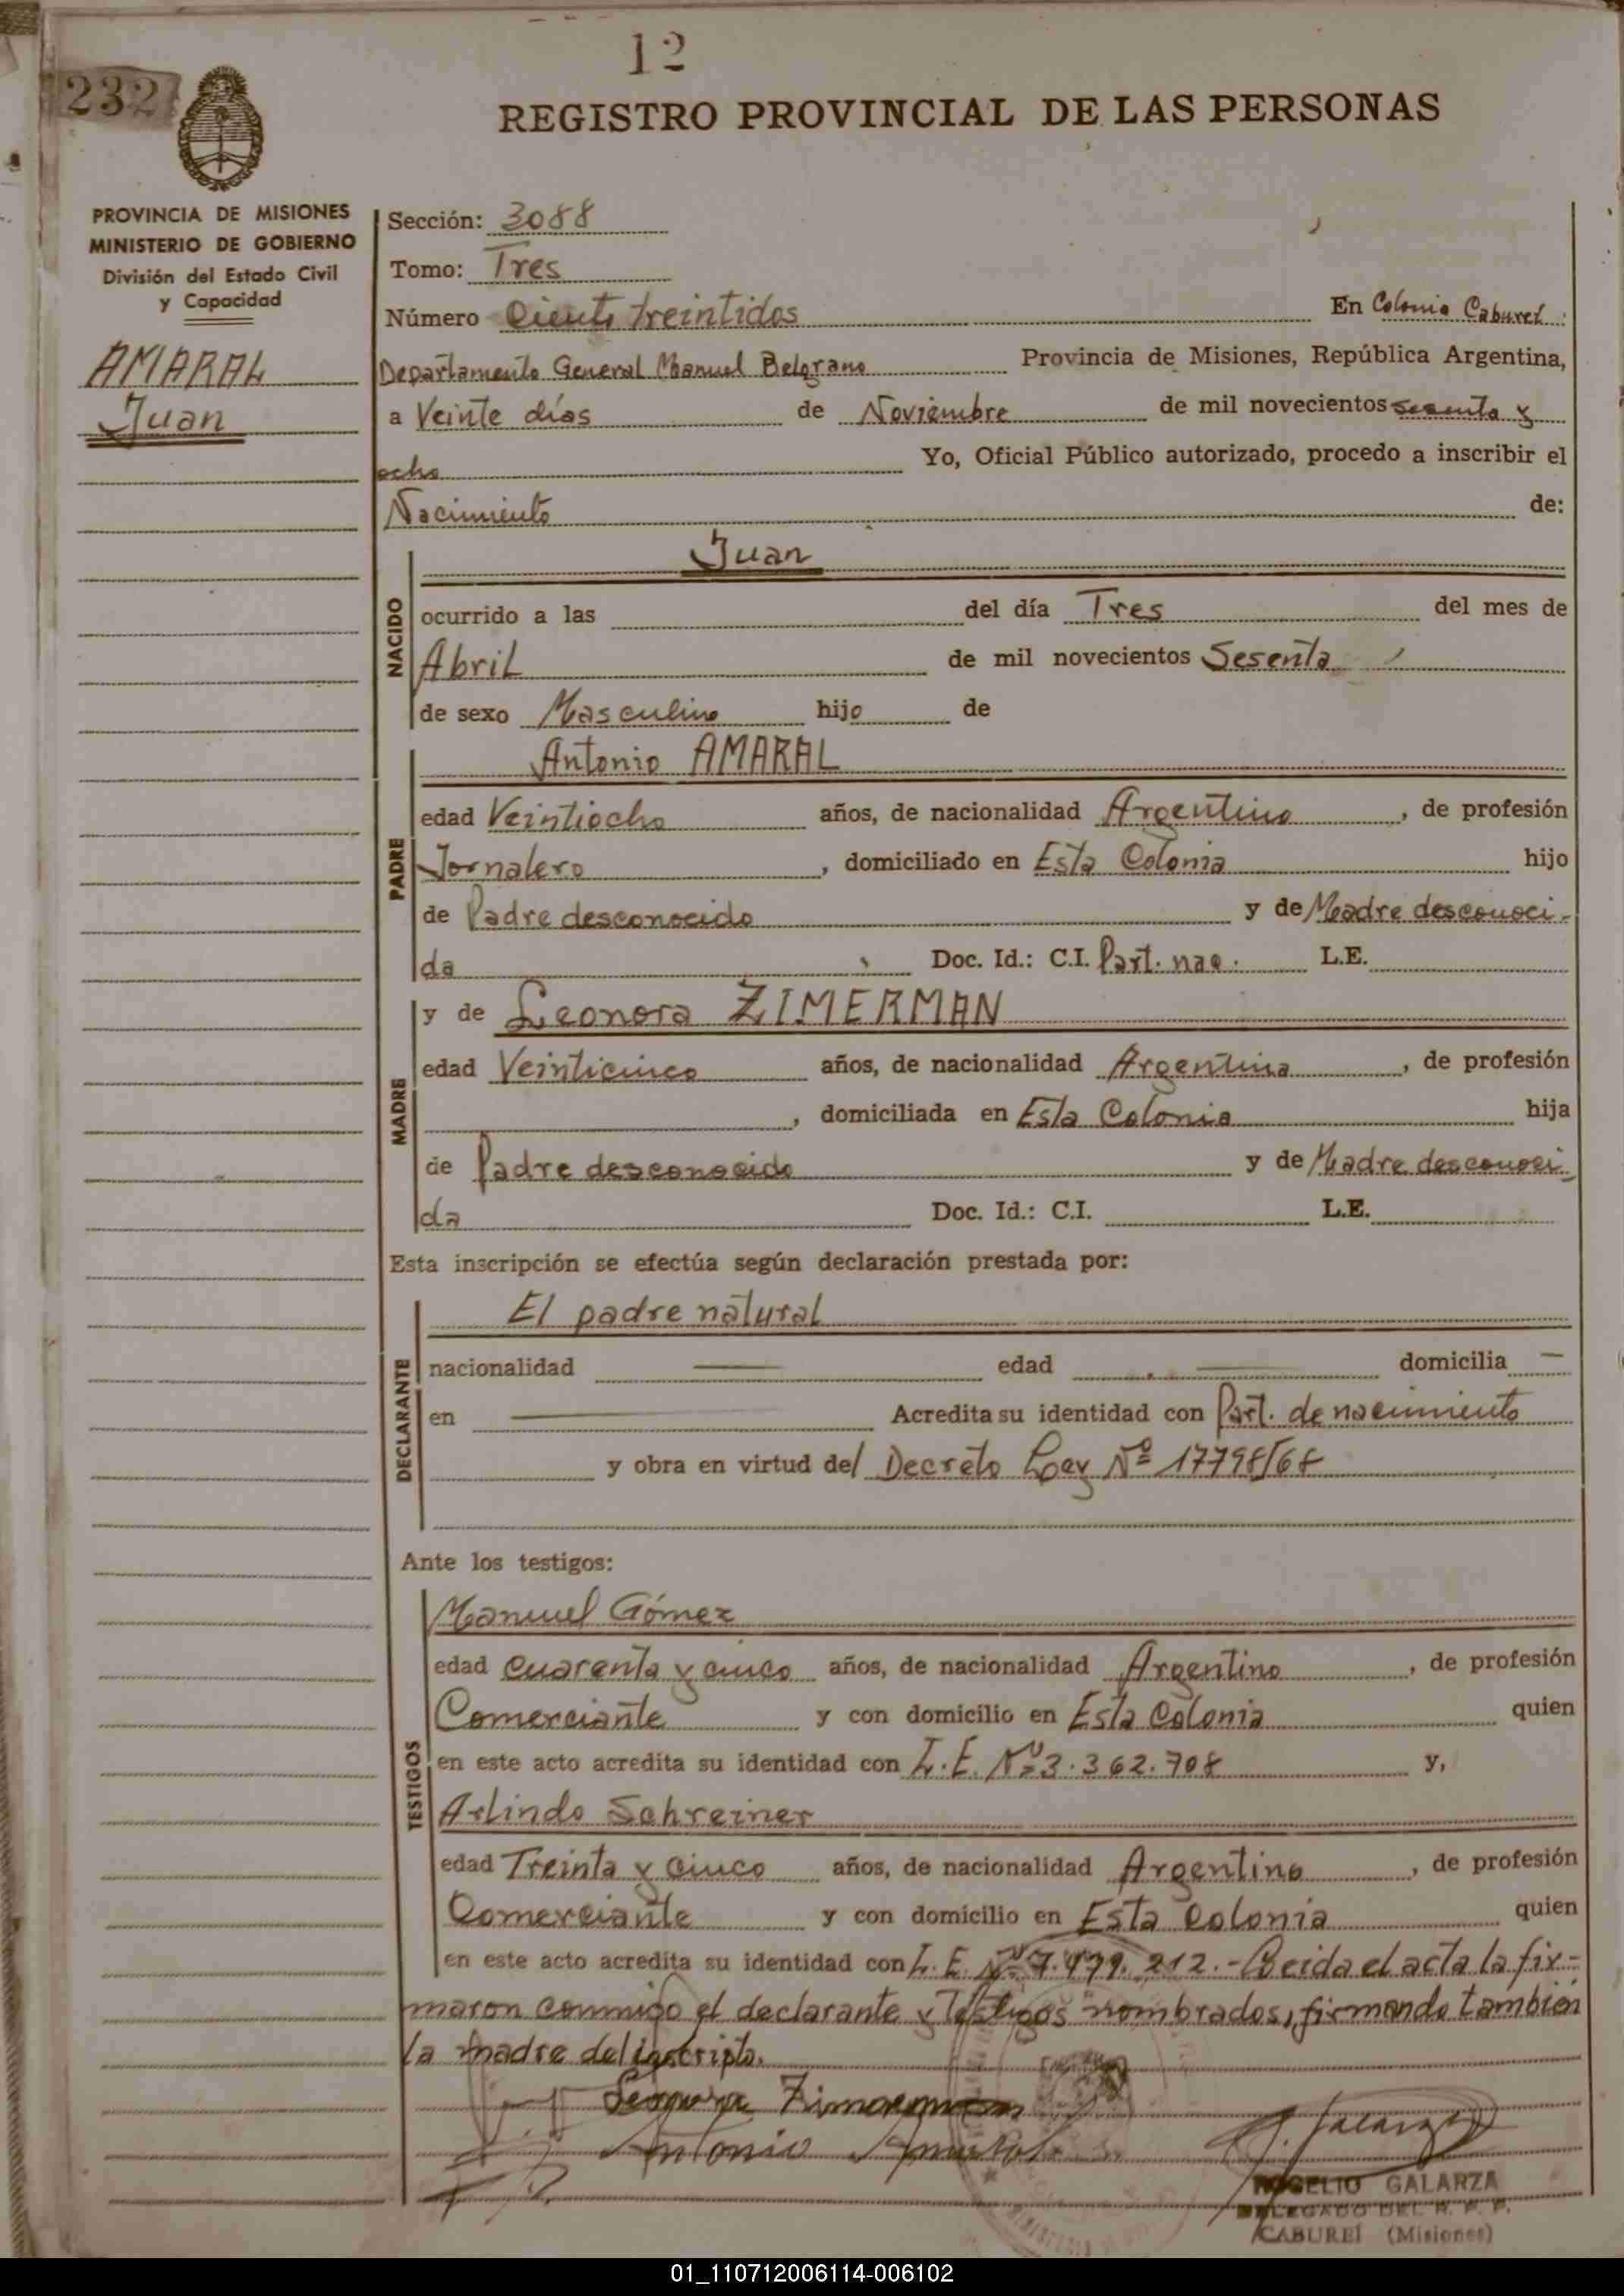 12
232
REGISTRO PROVINCIAL DE LAS PERSONAS
PROVINCIA DE MISIONES
MINISTERIO DE GOBIERNO
División del Estado Civil
y Capacidad
AMARAL
Juan
Sección: 3088
Tomo: Tres
Número Ciento treintidos En Colonia Cabureí
Departamento General Manuel Belgrano Provincia de Misiones, República Argentina,
a Veinte días de Noviembre de mil novecientos sesenta y
ocho Yo, Oficial Público autorizado, procedo a inscribir el
Nacimiento de:
NACIDO
Juan
ocurrido a las del día Tres del mes de
Abril de mil novecientos Sesenta
de sexo Masculino hijo de
PADRE
Antonio AMARAL
edad Veintiocho años, de nacionalidad Argentino, de profesión
Jornalero, domiciliado en Esta Colonia hijo
de Padre desconocido y de Madre desconoci-
da Doc. Id.: C.I. Part. nac. L.E.
MADRE
y de Leonora ZIMERMAN
edad Veinticinco años, de nacionalidad Argentina, de profesión
, domiciliada en Esta Colonia hija
de Padre desconocido y de Madre desconoci
da Doc. Id.: C.I. L.E.
Esta inscripción se efectúa según declaración prestada por:
DECLARANTE
El padre natural
nacionalidad — edad — domicilia —
en — Acredita su identidad con Part. de nacimiento
y obra en virtud del Decreto Ley Nº 17798/68
Ante los testigos:
TESTIGOS
Manuel Gómez
edad cuarenta y cinco años, de nacionalidad Argentino, de profesión
Comerciante y con domicilio en Esta Colonia quien
en este acto acredita su identidad con L.E. Nº 3.362.708 y,
Arlindo Schreiner
edad Treinta y cinco años, de nacionalidad Argentino, de profesión
Comerciante y con domicilio en Esta Colonia quien
en este acto acredita su identidad con L.E. Nº 7.479.212.- Leida el acta la fir-
maron conmigo el declarante y Testigos nombrados, firmando también
la madre del inscripto.
Leonora Zimerman
Antonio Amaral
J. Galarza
ROGELIO GALARZA
DELEGADO DEL R. P. P.
CABUREÍ (Misiones)
01_110712006114-006102